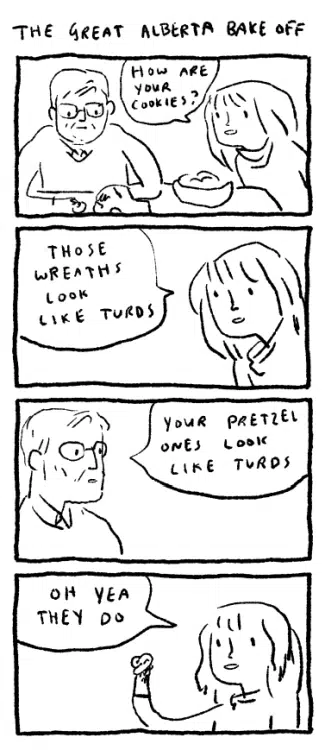 THE GREAT ALBERTA BAKE OFF
HOW ARE
YOUR
COOKIES?
THOSE
WREATHS
LOOK
LIKE TURDS
YOUR PRETZEL
ONES LOOK
LIKE TURDS
OH YEA
THEY DO